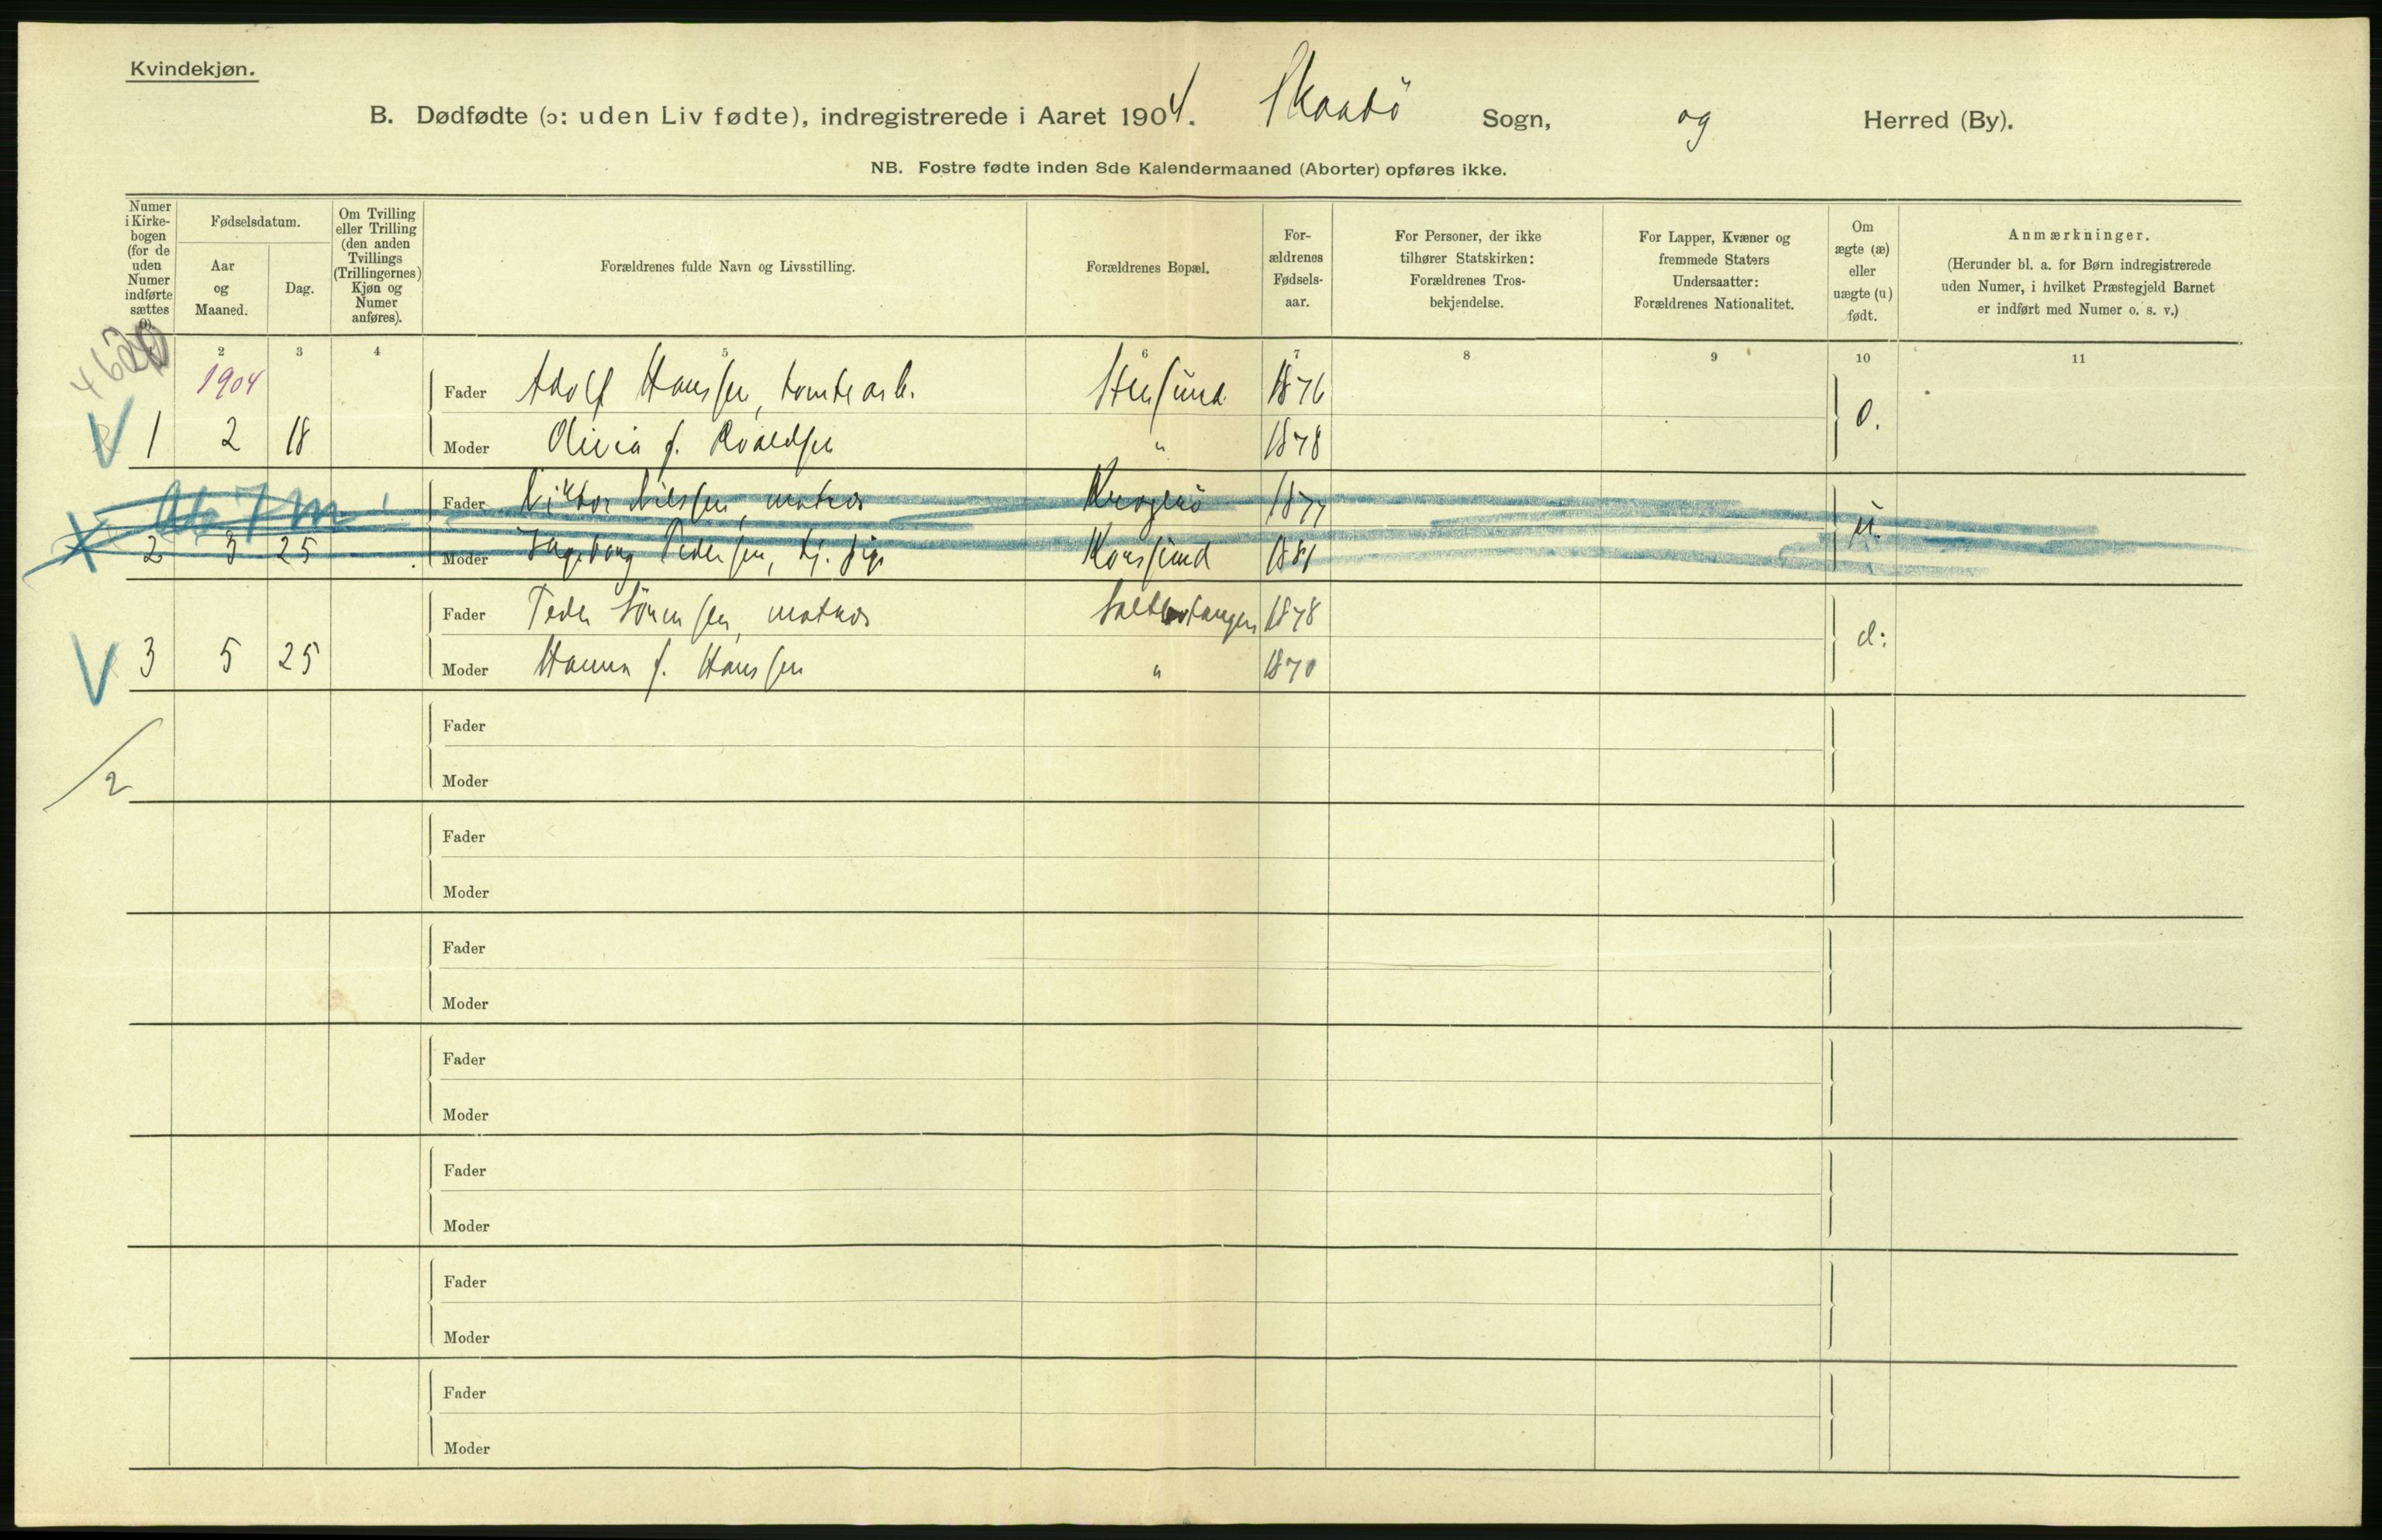 Kvindekjøn.
B. Dødfødte (ɔ: uden Liv fødte), indregistrerede i Aaret 1904. Skaatö Sogn, og Herred (By).
NB. Fostre fødte inden 8de Kalendermaaned (Aborter) opføres ikke.
Numer i Kirkebogen (for de uden Numer indførte sættes 0).
Fødselsdatum.
Aar og Maaned.
Dag.
Om Tvilling eller Trilling (den anden Tvillings (Trillingernes) Kjøn og Numer anføres).
Forældrenes fulde Navn og Livsstilling.
Forældrenes Bopæl.
Forældrenes Fødselsaar.
For Personer, der ikke tilhører Statskirken: Forældrenes Trosbekjendelse.
For Lapper, Kvæner og fremmede Staters Undersaatter: Forældrenes Nationalitet.
Om ægte (æ) eller uægte (u) født.
Anmærkninger.
(Herunder bl. a. for Børn indregistrerede uden Numer, i hvilket Præstegjeld Barnet er indført med Numer o. s. v.)
2 3 4 5 6 7 8 9 10 11
1904
Fader Adolf Hanssen, tomtearb. Stensund 1876
1 2 18 Moder Olivia f. Roaldsen " 1878
Fader Viktor Nilssen, matros Kragerö 1877 u.
2 3 25 Moder Ingeborg Pedersen, tj. pige Korssund 1881
Fader Peder Sörensen, matros 1878
3 5 25 Moder Hanna f. Hanssen " 1870
Fader
2 Moder
Fader
Moder
Fader
Moder
Fader
Moder
Fader
Moder
Fader
Moder
Fader
Moder